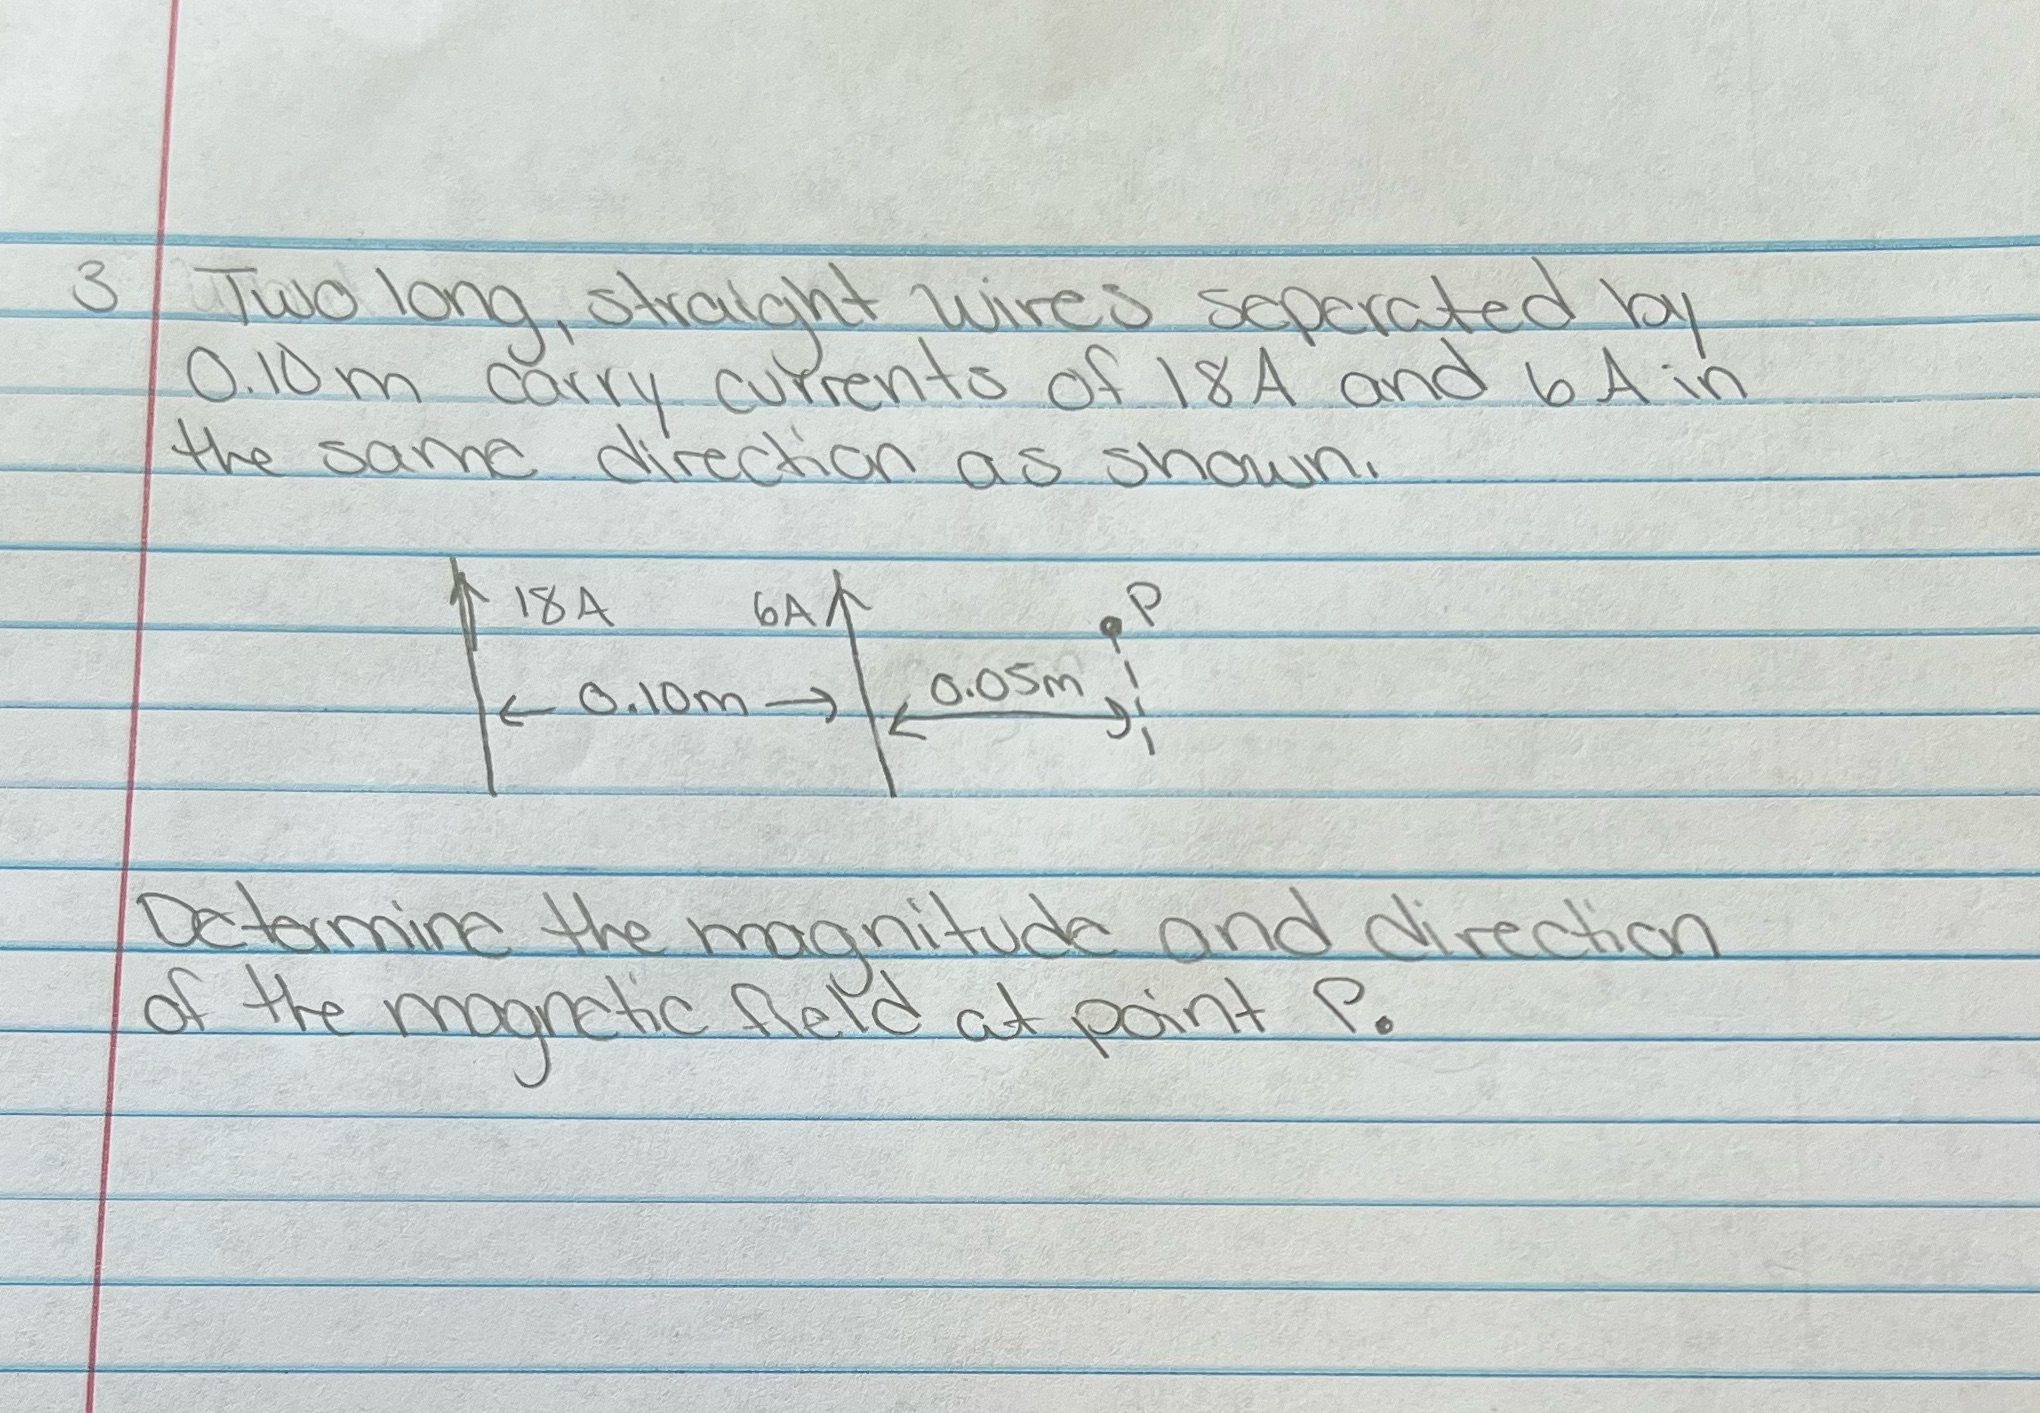 3 Two long, straight wires seperated by
0.10m carry currents of 18A and 6A in
the same direction as shown.
18A 6A P
0.10m 0.05m
Determine the magnitude and direction
of the magnetic field at point P.